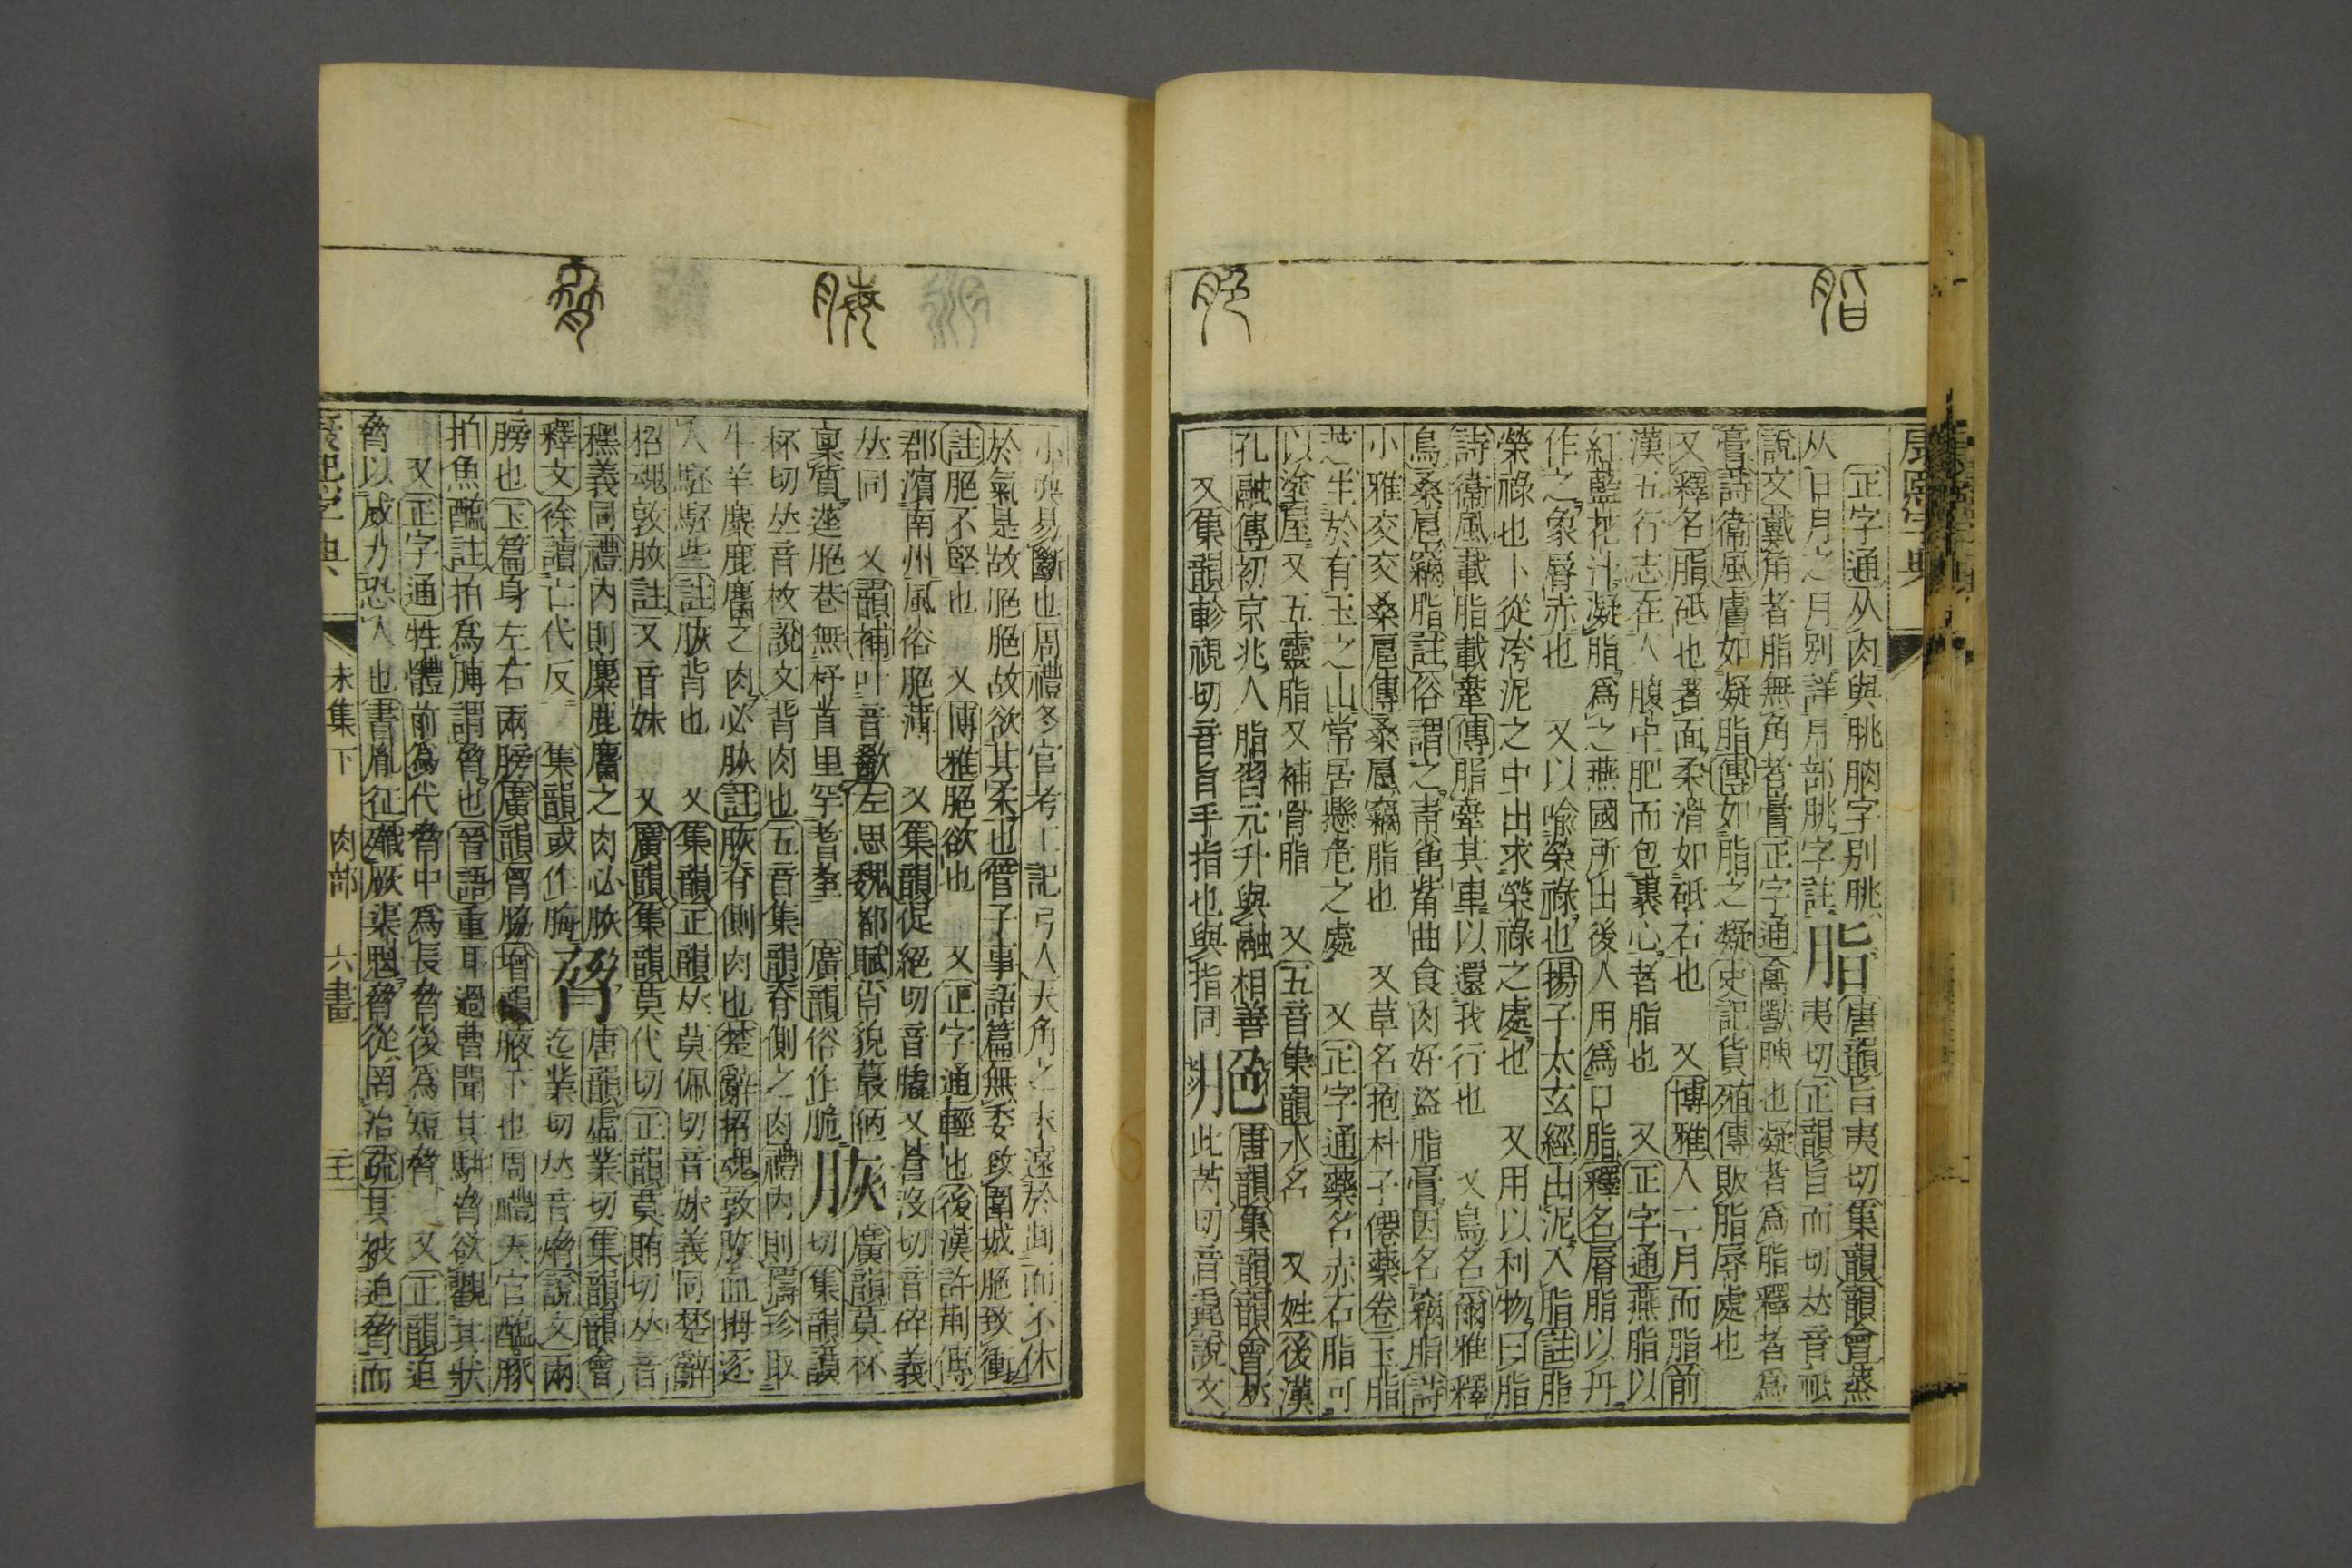 脂
脃
康熙字典
正字通从肉與朓朒字别朓脂唐韻旨夷切集韻韻會蒸
从日月之月别詳月部朓字註夷切正韻旨而切𠀤音祗
說文戴角者脂無角者膏正字通禽獸腴也凝者爲脂釋者爲
膏詩衞風膚如凝脂傳如脂之凝史記貨殖傳敗脂辱處也
又釋名脂砥也著面柔滑如砥石也又博雅人二月而脂前
漢五行志在人腹中肥而包裹心者脂也又正字通燕脂以
紅藍花汁凝脂爲之燕國所出後人用爲口脂釋名脣脂以丹
作之象脣赤也又以喻榮祿也揚子太玄經出泥入脂註脂
榮祿也卜從洿泥之中出求榮祿之處也又用以利物曰脂
詩衞風載脂載舝傳脂舝其車以還我行也又鳥名爾雅釋
鳥桑鳸竊脂註俗謂之靑雀觜曲食肉好盜脂膏因名竊脂詩
小雅交交桑扈傳桑鳸竊脂也又草名抱朴子僊藥卷玉脂
芝生於有玉之山常居懸危之處又正字通藥名赤石脂可
以塗屋又五靈脂又補骨脂又五音集韻水名又姓後漢
孔融傳初京兆人脂習元升與融相善脃唐韻集韻韻會𠀤
又集韻軫視切音旨手指也與指同此芮切音毳說文
脢
脅
小耎易斷也周禮冬官考工記弓人夫角之末遠於𠜶而不休
於氣是故脃脃故欲其柔也管子事語篇無委致圍城脃致衝
註脃不堅也又博雅脃欲也又正字通輕也後漢許荆傳
郡濵南州風俗脃薄又集韻促絕切音膬又蒼沒切音碎義
𠀤同又韻補叶音歠左思魏都賦宵貌蕞陋脢廣韻莫杯
稟質遳脃巷無杼首里罕耆耋廣韻俗作脆切集韻謨
杯切𠀤音枚說文背肉也五音集韻脊側之肉禮內則擣珍取
牛羊麋鹿麕之肉必脄註脄脊側肉也楚辭招魂敦脄血拇逐
人駓駓些註脄背也又集韻正韻𠀤莫佩切音妹義同楚辭
招魂敦脄註又音妹又廣韻集韻莫代切正韻莫賄切𠀤音
穤義同禮內則麋鹿麕之肉必脄脅唐韻虛業切集韻韻會
釋文徐讀亡代反集韻或作脢迄業切𠀤音熁說文兩
膀也玉篇身左右兩膀廣韻胷脇增韻腋下也周禮天官醢豚
拍魚醢註拍爲膊謂脅也晉語重耳過曹聞其骿脅欲觀其狀
又正字通牲體前爲代脅中爲長脅後爲短脅又正韻迫
脅以威力恐人也書胤征殲厥渠魁脅從罔治疏其被迫脅而
康熙字典
未集下
肉部
六畫